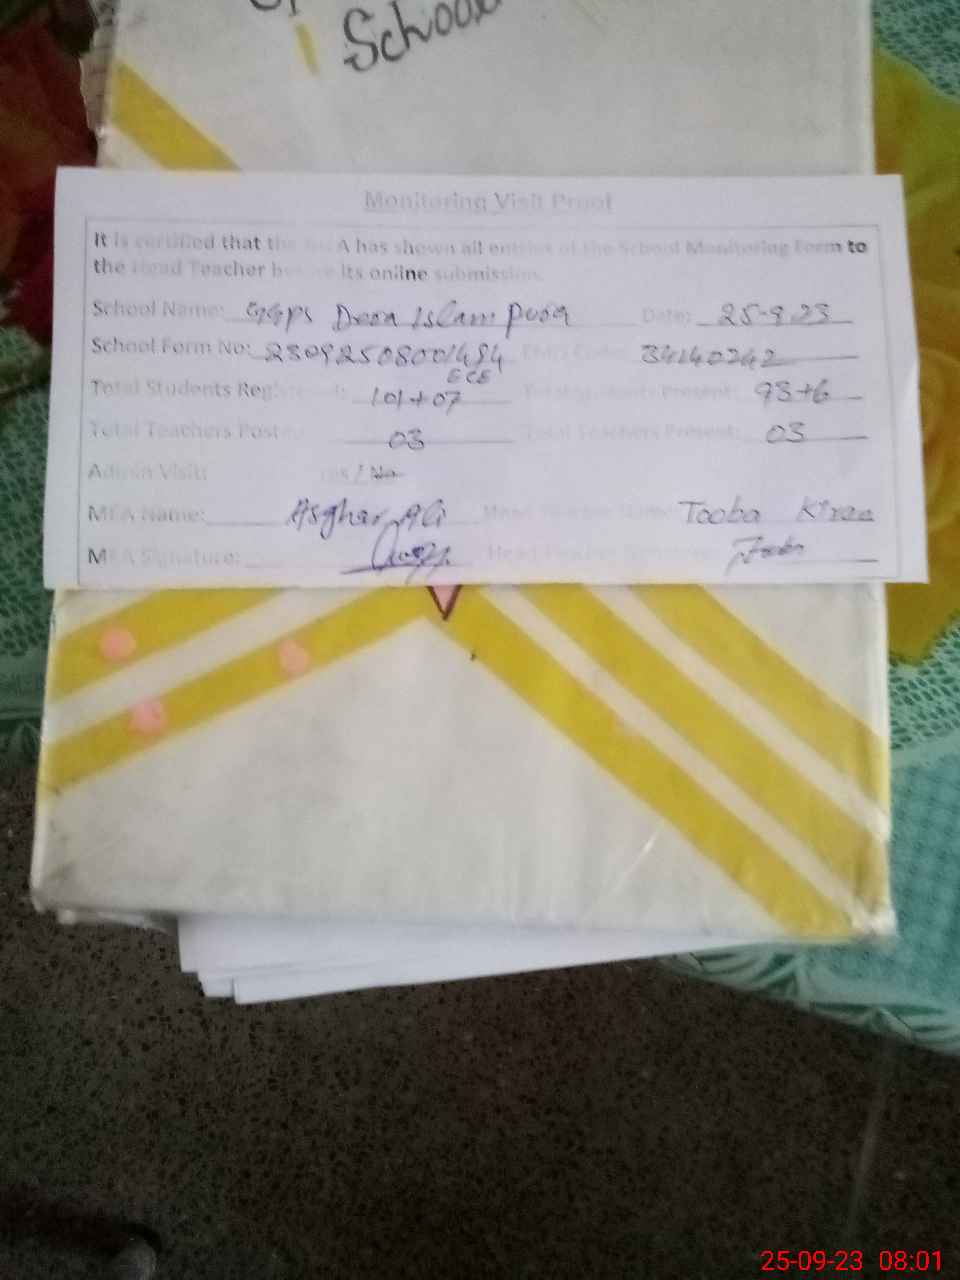 School
Monitoring Visit Proof
It is certified that the MEA has shown all entries of the School Monitoring Form to
the Head Teacher before its online submission.
School Name: GGPS Dera Islam Pura Date: 25-9-23
School Form No: 23092508001484 Entry Code: 34140242
ECE
Total Students Registered: 101+07 Total Students Present: 93+6
Total Teachers Posted: 03 Total Teachers Present: 03
Admin Visit: Yes / No
MEA Name: Asghar Ali Head Teacher Name: Tooba Kiran
MEA Signature: Head Teacher Signature:
25-09-23 08:01